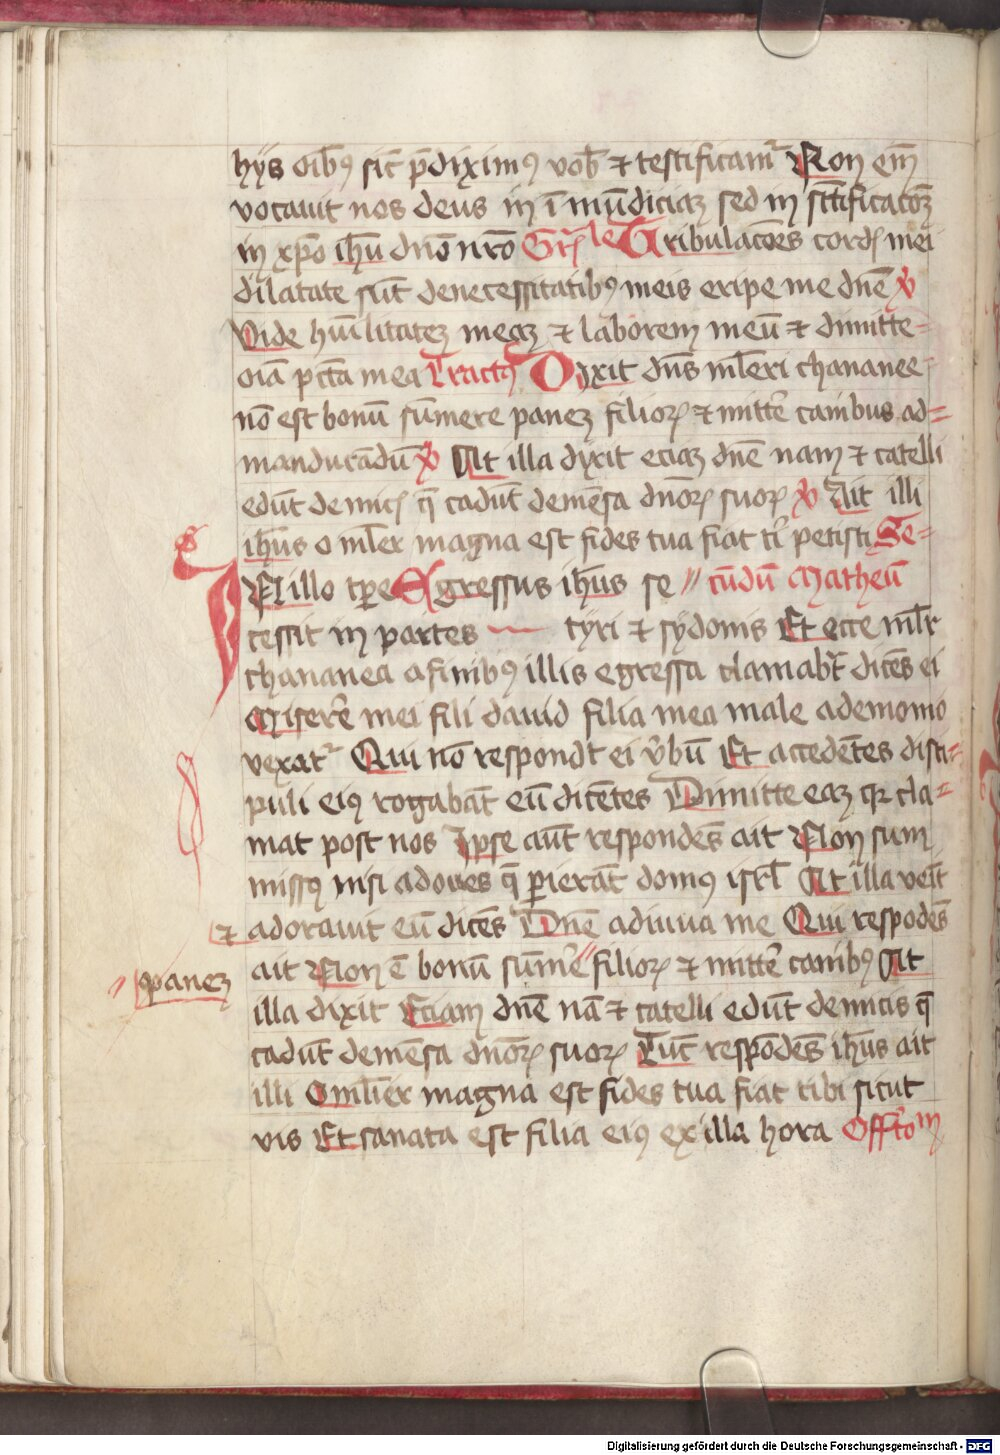 hÿs oīb⁹ sic̄ p̄diximꝰ vob̄ ⁊ testificam᷑ Non em̄
vocauit nos deus in ī mūdiciaꝫ sed in sc̄tificacōꝫ
in xp̄o ih̄u dn̄o nr̄o Gr̄ale Tribulacōes cordꝭ mei
dilatate sūt denecessitatibꝰ meis eripe me dn̄e ℣
Vide hūilitateꝫ meaꝫ ⁊ laborem meū ⁊ dimitte=
oīa pctā mea Tractꝰ Dixit dn̄s ml̄eri chananee=
nō est bonū sūmere paneꝫ filioꝝ ⁊ mitte᷑ canibus ad=
manducādū ℣ At illa dixit eciaꝫ dn̄e nam ⁊ catelli
edūt de micꝭ q̄ cadūt demēsa dn̄oꝝ suoꝝ ℣ Ait illi
ih̄us o ml̄er magna est fides tua fiat t᷑ petisti Se=
IN illo tꝑe Egressus ih̄us se // cūdū Matheū
cessit in partes — tyri ⁊ sydonis Et ecce ml̄r
chananea a finibꝰ illis egressa clamab̄t dicēs ei
Misere᷑ mei fili dauid filia mea male ademonio
vexat᷑ Qui nō respondt ei v̄bū Et accedētes disci=
puli eiꝰ rogabāt eū dicētes Dimitte eaꝫ qꝛ cla=
mat post nos Ipse aūt respondēs ait Non sum
missꝰ nisi ad oues q̄ perierāt domꝰ isrl̄ At illa veīt
⁊ adorauit eū dicēs Dn̄e adiuua me Qui respōdēs
ait Non ē bonū sūme᷑ // filioꝝ ⁊ mitte᷑ canibꝰ At
// paneꝫ
illa dixit Eciam dn̄e nā ⁊ catelli edūt demicis q̄
cadūt demēsa dn̄oꝝ suoꝝ Tūc respōdēs ih̄us ait
illi O ml̄ier magna est fides tua fiat tibi sicut
vis Et sanata est filia eiꝰ ex illa hora Offtō᷑m
Digitalisierung gefördert durch die Deutsche Forschungsgemeinschaft - DFG